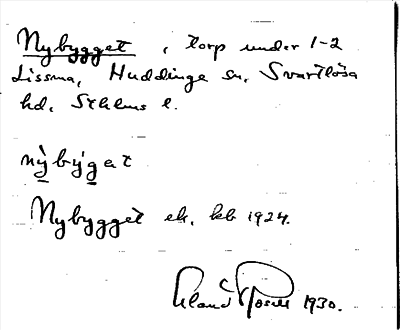 Nybygget, torp under 1-2
Lissma, Huddinge sn, Svartlösa
hd, Sthlms l.
nỳbýgat
Nybygget ek. kb 1924.
Roland Rosell 1930.